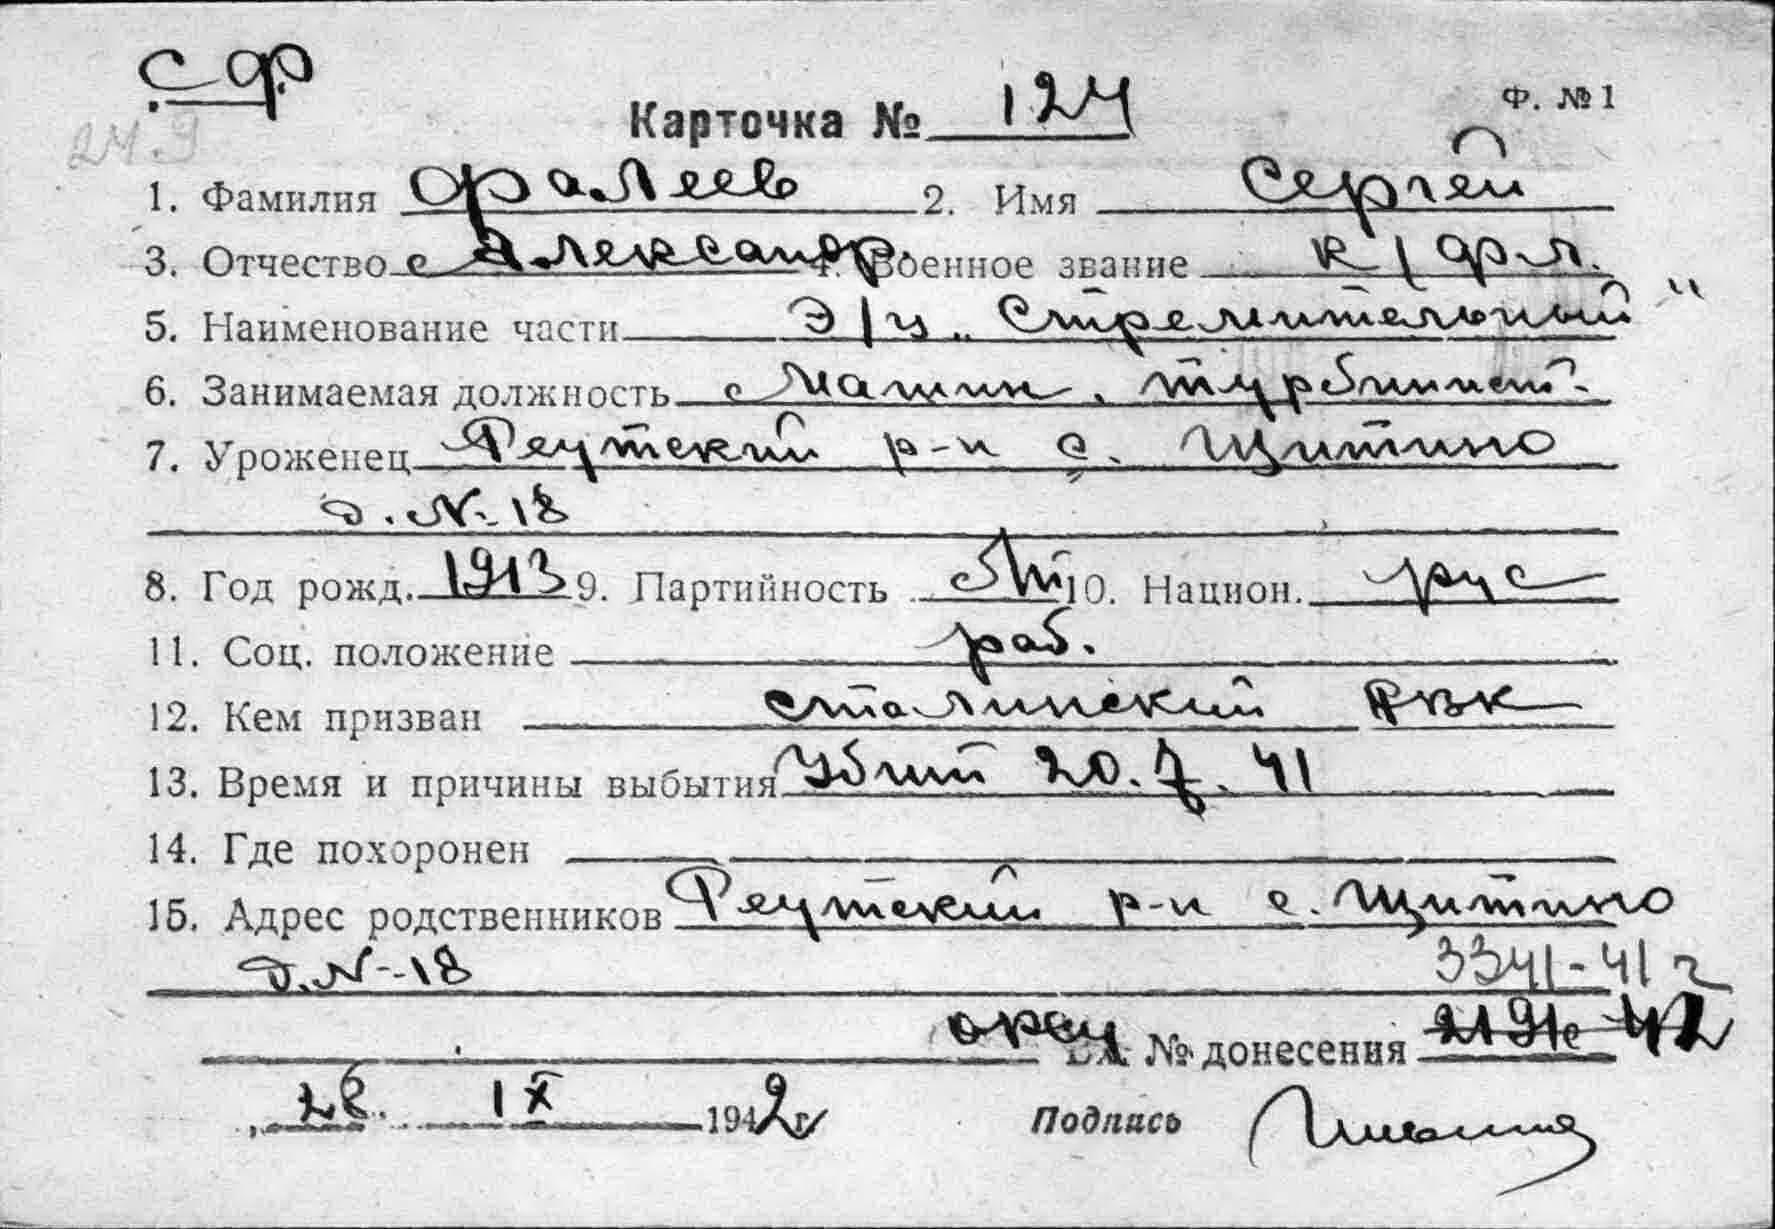 С.Ф.
24.9
Ф. №1
Карточка № 124
1. Фамилия Фалеев 2. Имя Сергей
3. Отчество Александр. 4. Военное звание к/фл.
5. Наименование части Э/ц „Стремительный"
6. Занимаемая должность Машин. турбинист.
7. Уроженец Реутский р-н с. Щитино
д. №-18
8. Год рожд. 1913 9. Партийность 10. Национ. рус
11. Соц. положение раб.
12. Кем призван Сталинский РВК
13. Время и причины выбытия Убит 20.7.41
14. Где похоронен
15. Адрес родственников Реутский р-н с. Щитино
д. №-18 3341-41г
оргу Вх. № донесения 2191с 42
28. IX 1942г
Подпись